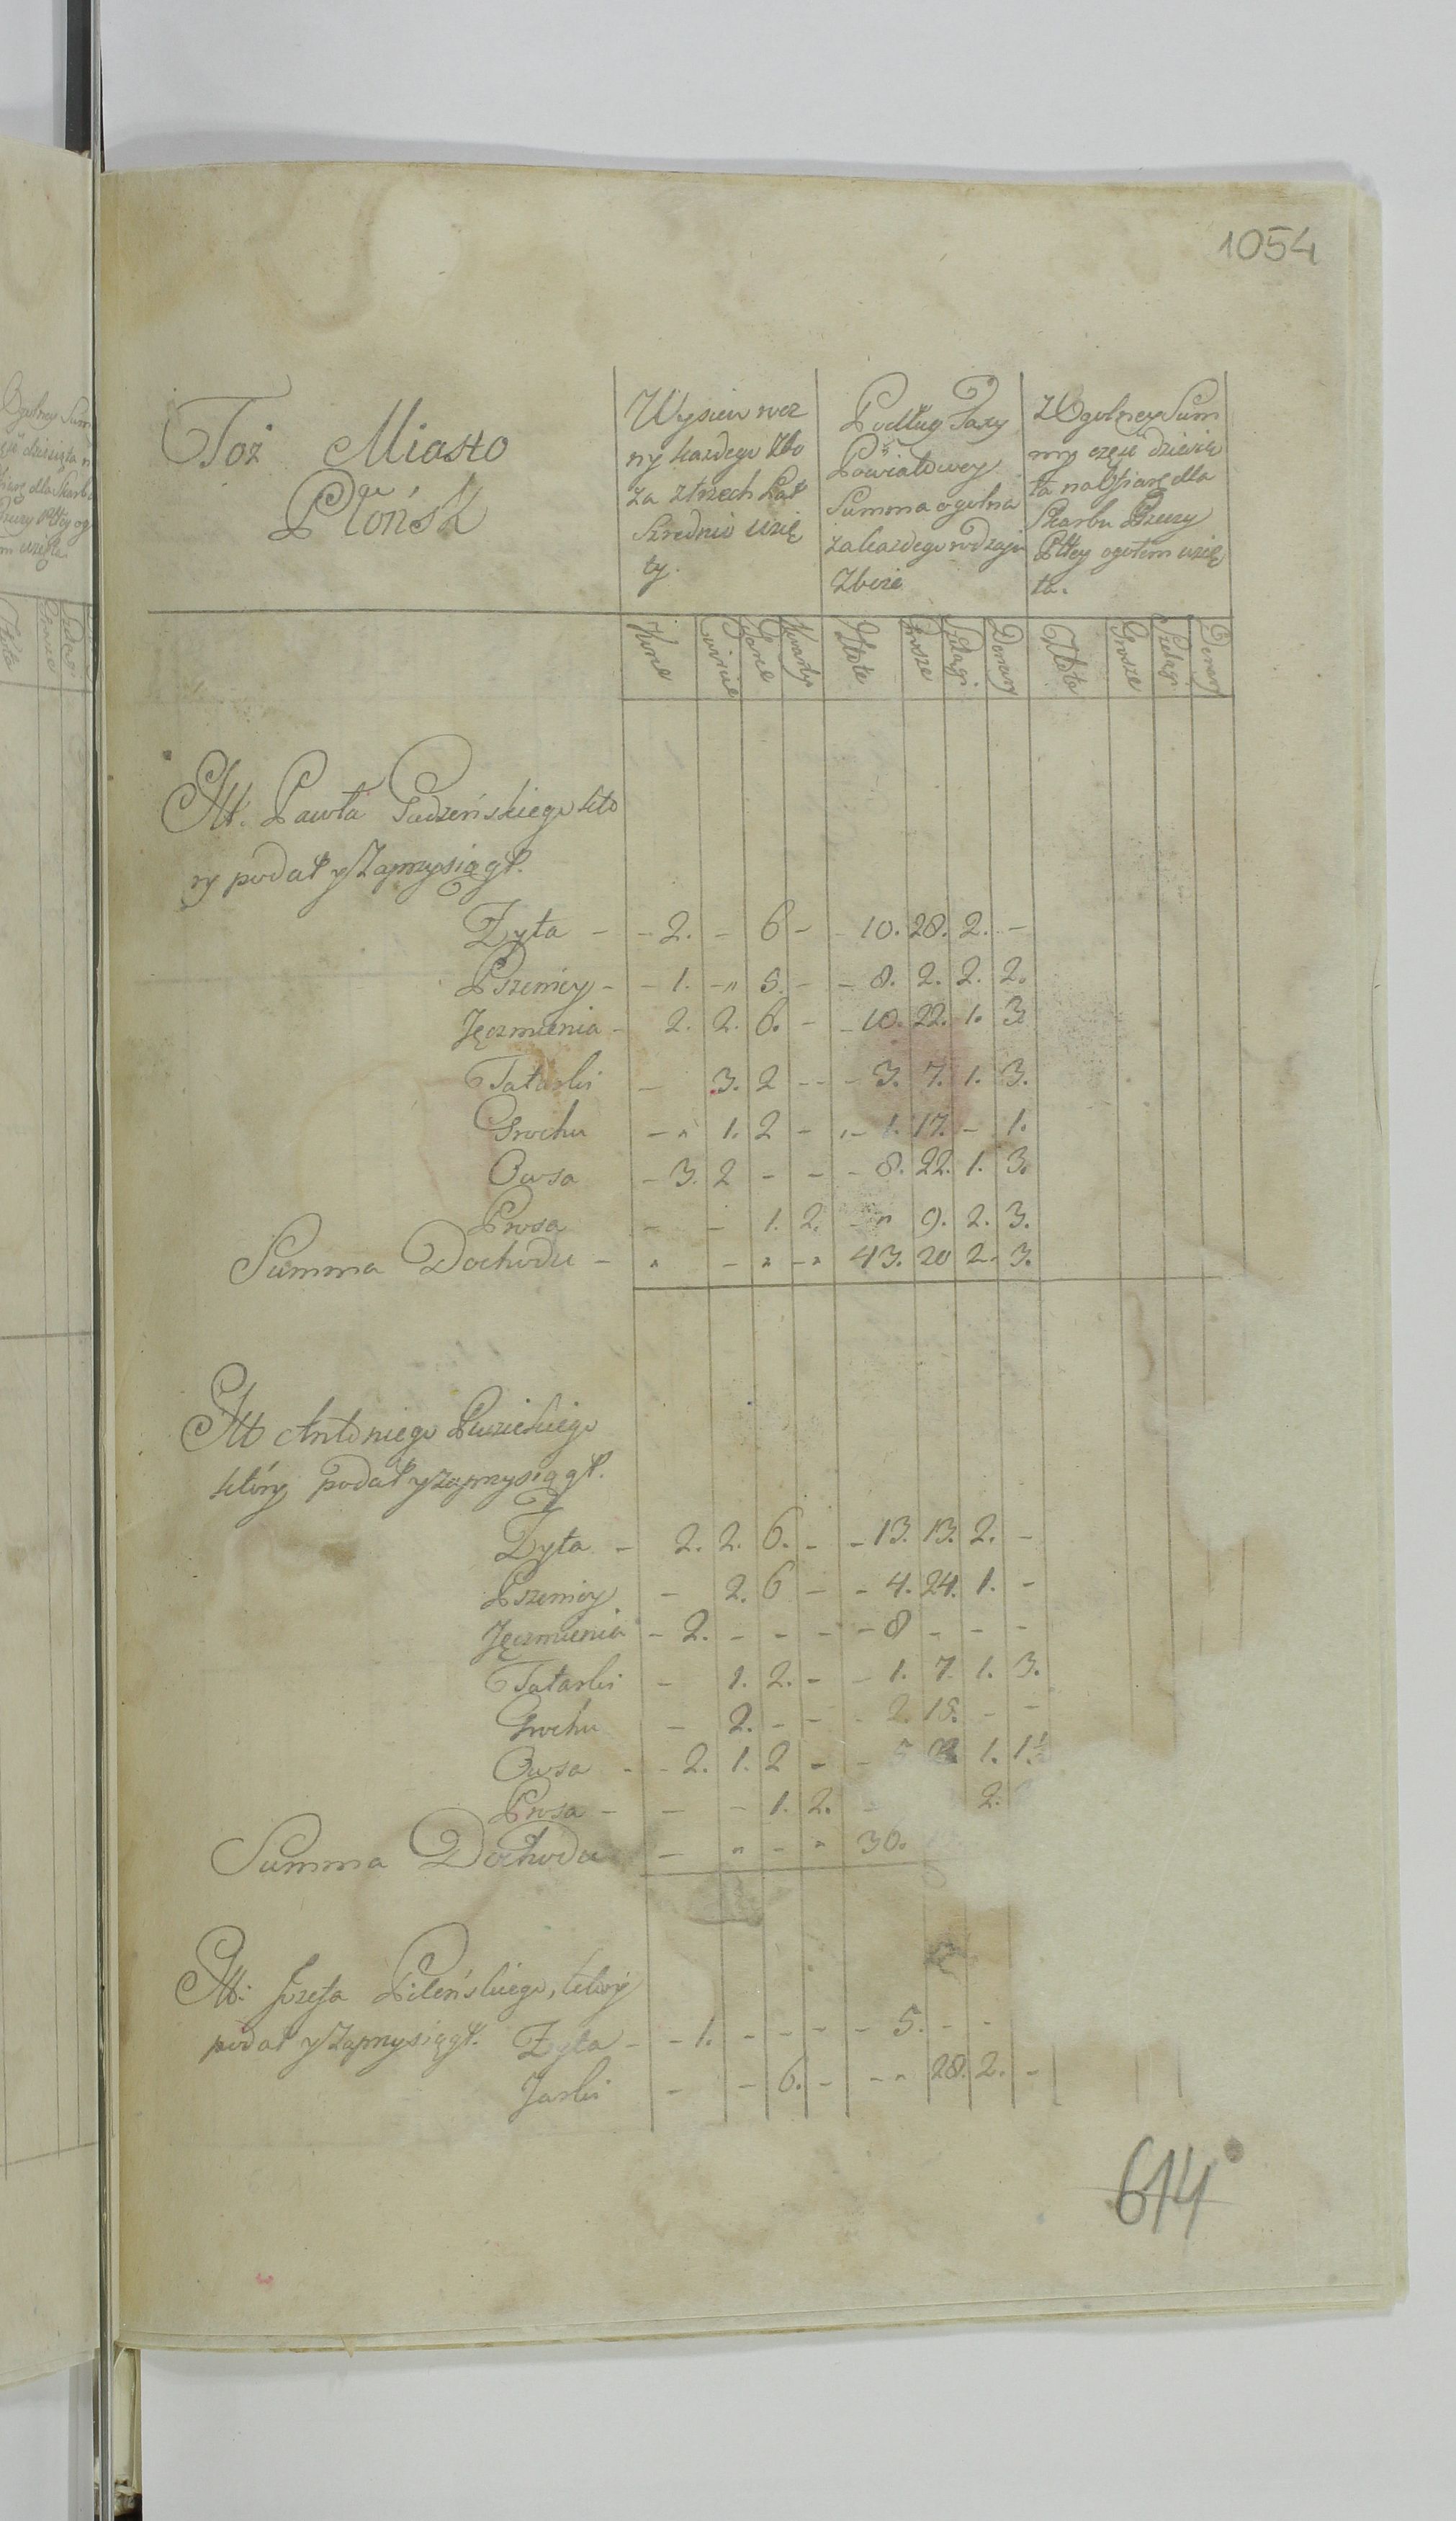 1054
Toż Miasto
Płońsk
Wysiew rocz
ny każdego Zbo
za z trzech Lat
Srzednio wzię
ty.
Podług Taxy
Powiatowey
Summa ogolna
za każdego rodzaju
Zboże
Z Ogolney Sum
my częsć dziesią
ta na Ofiarę dla
Skarbu Rzeczy
Pltey ogołem wzię
ta.
Korce Cwierci Garce Kwarty Złote Grosze Szelagi Denary Złota Grosze Szelagi Denary
Pawła kto
ry podał y Zaprzysiągł.
Zyta - - 2. - 6 - - 10. 28. 2. -
Pszenicy - - 1. - " 5. - - 8. 2. 2. 2.
Jęczmienia - 2. 2. 6. - - 10. 22. 1. 3
Tatarki - 3. 2 - - - 3. 7. 1. 3.
Grochu - " 1. 2 - - 1. 17. - 1.
Owsa - 3. 2 - - - 8. 22. 1. 3.
Prosa - - 1. 2. - " 9. 2. 3.
Summa Dochodu - " - " - " 43. 20 2. 3.
Antoniego
który podał y zaprzysiągł.
Zyta - 2. 2. 6. - - 13. 13. 2. -
Pszenicy - 2. 6 - - 4. 24. 1. -
Jęczmienia - 2. - - - - 8 - - -
Tatarki - 1. 2. - - 1. 7. 1. 3.
Grochu - 2. - - - 2. 15. - -
Owsa - - 2. 1. 2 - - 1.
Prosa - - - 1. 2. - 2.
Summa Dochodu - " - " 30.
Jozefa Pileńskiego, który
podał y Zaprzysiągł. Zyta - - 1. - - - - 5. - -
Jarki - - 6. - - " 28. 2. -
614